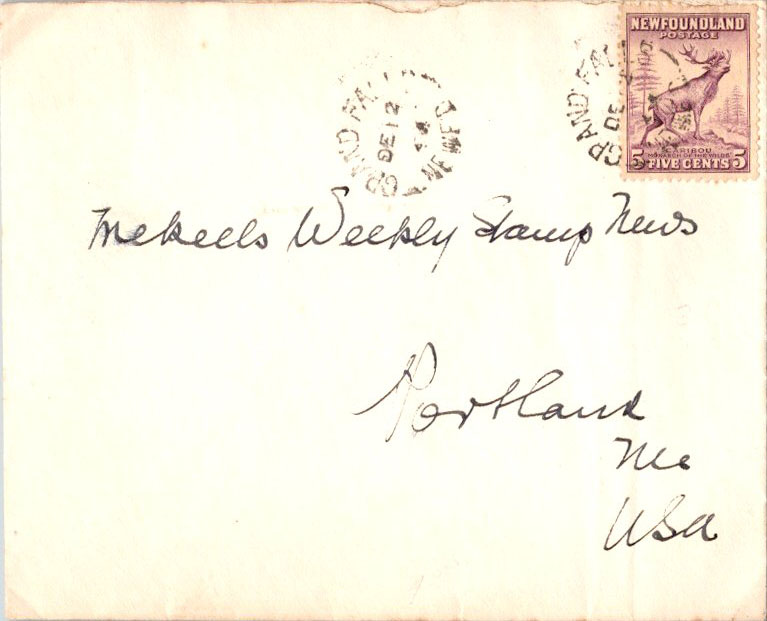 NEWFOUNDLAND
POSTAGE
CARIBOU
MONARCH OF THE WILDS
5 FIVE CENTS 5
GRAND FALLS
DE 12
NEWF'D
GRAND FALL
DE
Mekeels Weekly Stamp News
Portland
Me
USA